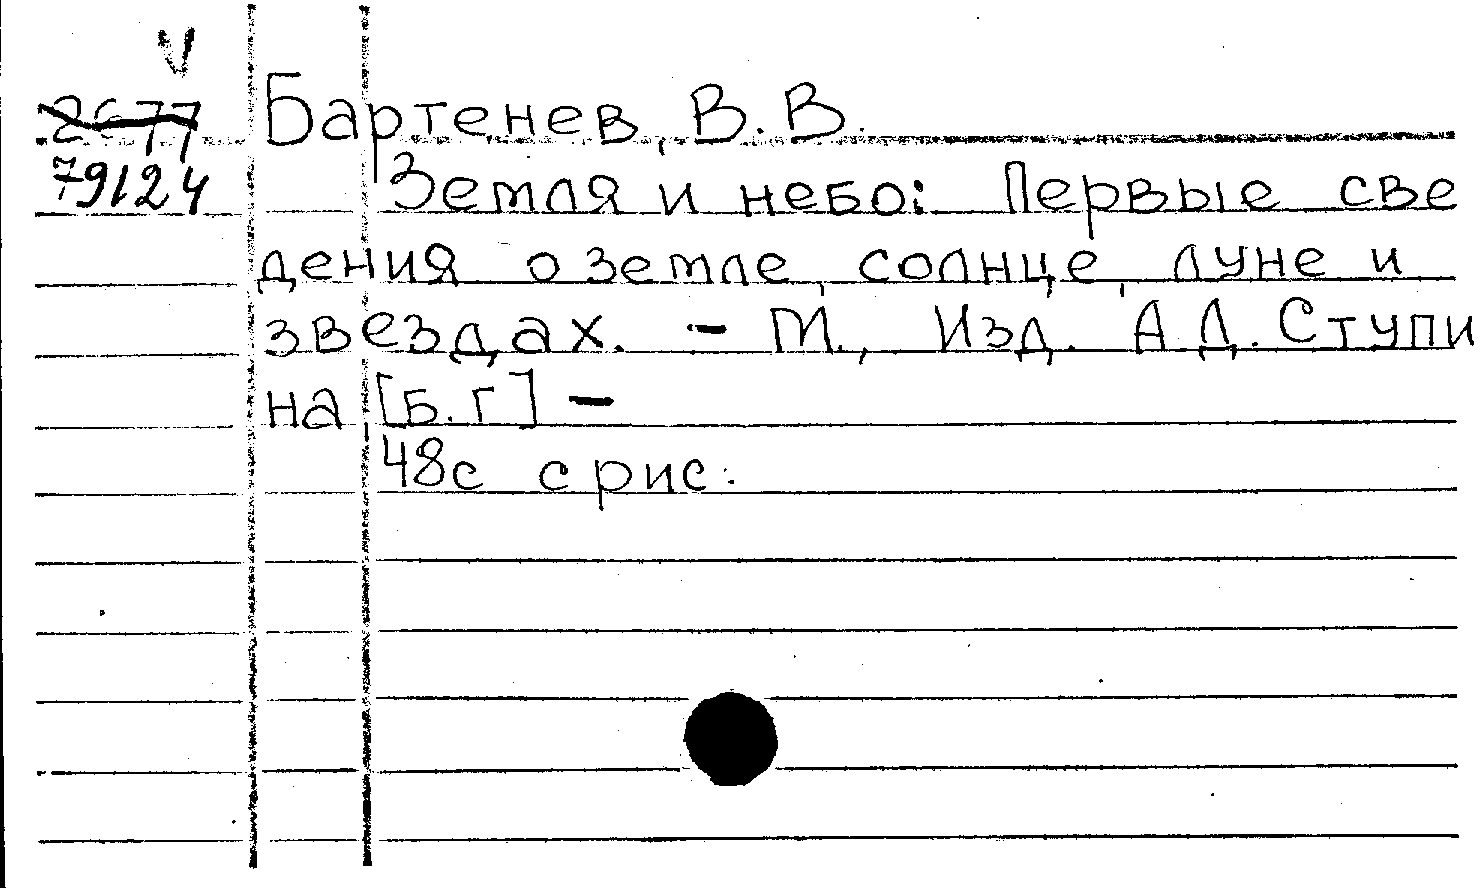 V
2677 Бартенев, В. В.
79124 Земля и небо: Первые све
дения о земле, солнце, луне и
звездах. - М., Изд. А.Д. Ступи
на [Б.г] -
48с с рис.